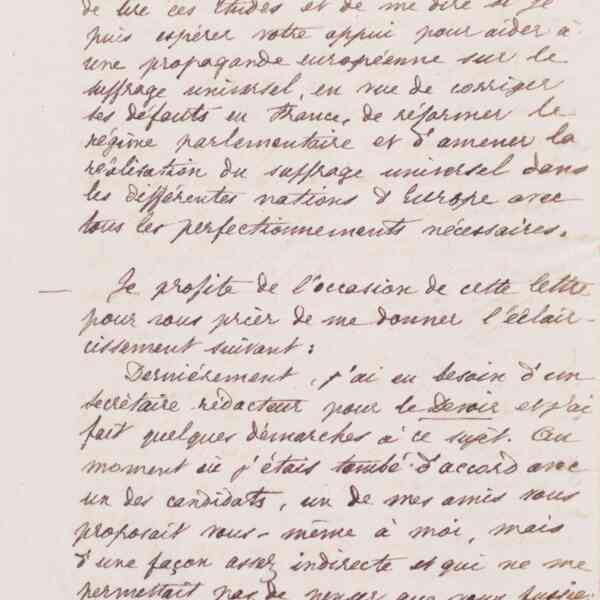 de lire ces études et de me dire si je
puis espérer votre appui pour aider à
une propagande européenne sur le
suffrage universel, en vue de corriger
ses défauts en France, de réformer le
régime parlementaire et d'amener la
réalisation du suffrage universel dans
les différentes nations d'Europe avec
tous les perfectionnements nécessaires.
— Je profite de l'occasion de cette lettre
pour vous prier de me donner l'éclair-
cissement suivant :
Dernièrement, j'ai eu besoin d'un
secrétaire rédacteur pour le Devoir et j'ai
fait quelques démarches à ce sujet. Au
moment où j'étais tombé d'accord avec
un des candidats, un de mes amis vous
proposait vous-même à moi, mais
d'une façon assez indirecte et qui ne me
permettait pas de penser que vous fussiez